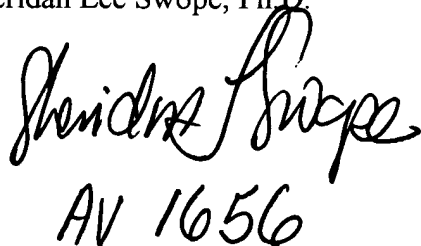 eridan Lee Swope, Ph.D.
Sheridan L Swope
AV 1656